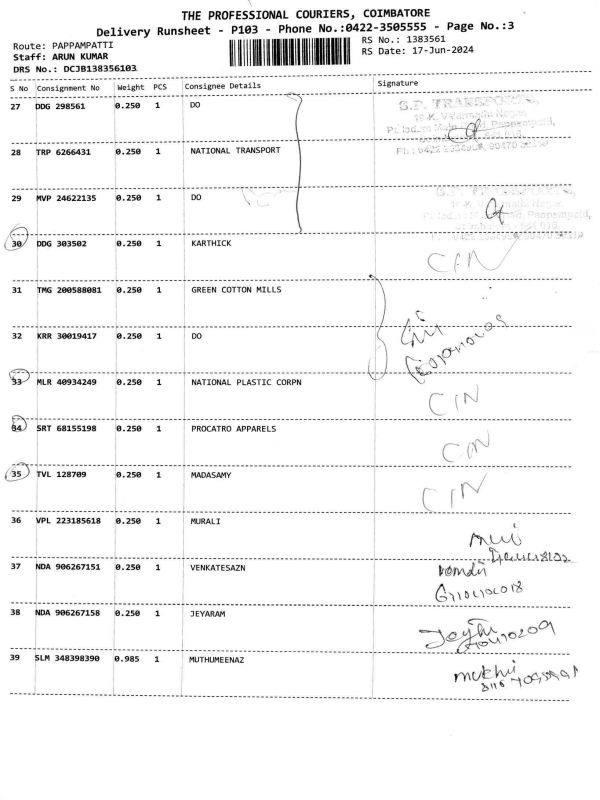 THE PROFESSIONAL COURIERS, COIMBATORE
Delivery Runsheet - P103 - Phone No.:0422-3505555 - Page No.:3
Route: PAPPAMPATTI
RS No.: 1383561
Staff: ARUN KUMAR
RS Date: 17-Jun-2024
DRS No.: DCJB138356103
S No Consignment No Weight PCS Consignee Details Signature
27 DDG 298561 0.250 1 DO
S.P. TRANSPORTS,
28 TRP 6266431 0.250 1 NATIONAL TRANSPORT
29 MVP 24622135 0.250 1 DO
S.P. TRANSPORTS,
30 DDG 303502 0.250 1 KARTHICK
31 TMG 200588081 0.250 1 GREEN COTTON MILLS
32 KRR 30019417 0.250 1 DO
33 MLR 40934249 0.250 1 NATIONAL PLASTIC CORPN CIN
34 SRT 68155198 0.250 1 PROCATRO APPARELS
35 TVL 128709 0.250 1 MADASAMY CIN
36 VPL 223185618 0.250 1 MURALI
37 NDA 906267151 0.250 1 VENKATESAZN
38 NDA 906267158 0.250 1 JEYARAM
39 SLM 348398390 0.985 1 MUTHUMEENAZ